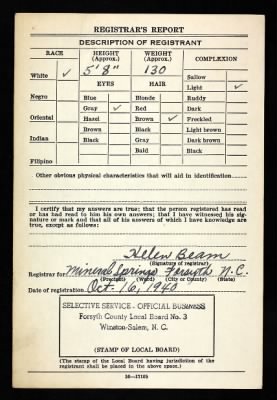 REGISTRAR'S REPORT
DESCRIPTION OF REGISTRANT
RACE HEIGHT (Approx.) WEIGHT (Approx.) COMPLEXION
White ✓ 5' 8" 130 Sallow
EYES HAIR Light ✓
Negro Blue Blonde Ruddy
Gray ✓ Red Dark
Oriental Hazel Brown ✓ Freckled
Brown Black Light brown
Indian Black Gray Dark brown
Bald Black
Filipino
Other obvious physical characteristics that will aid in identification
I certify that my answers are true; that the person registered has read
or has had read to him his own answers; that I have witnessed his sig-
nature or mark and that all of his answers of which I have knowledge are
true, except as follows:
Helen Beam
(Signature of registrar)
Registrar for Mineral Springs Forsyth N.C.
(Precinct) (Ward) (City or County) (State)
Date of registration Oct. 16, 1940
SELECTIVE SERVICE - OFFICIAL BUSINESS
Forsyth County Local Board No. 3
Winston-Salem, N. C.
(STAMP OF LOCAL BOARD)
(The stamp of the Local Board having jurisdiction of the
registrant shall be placed in the above space.)
16—17105